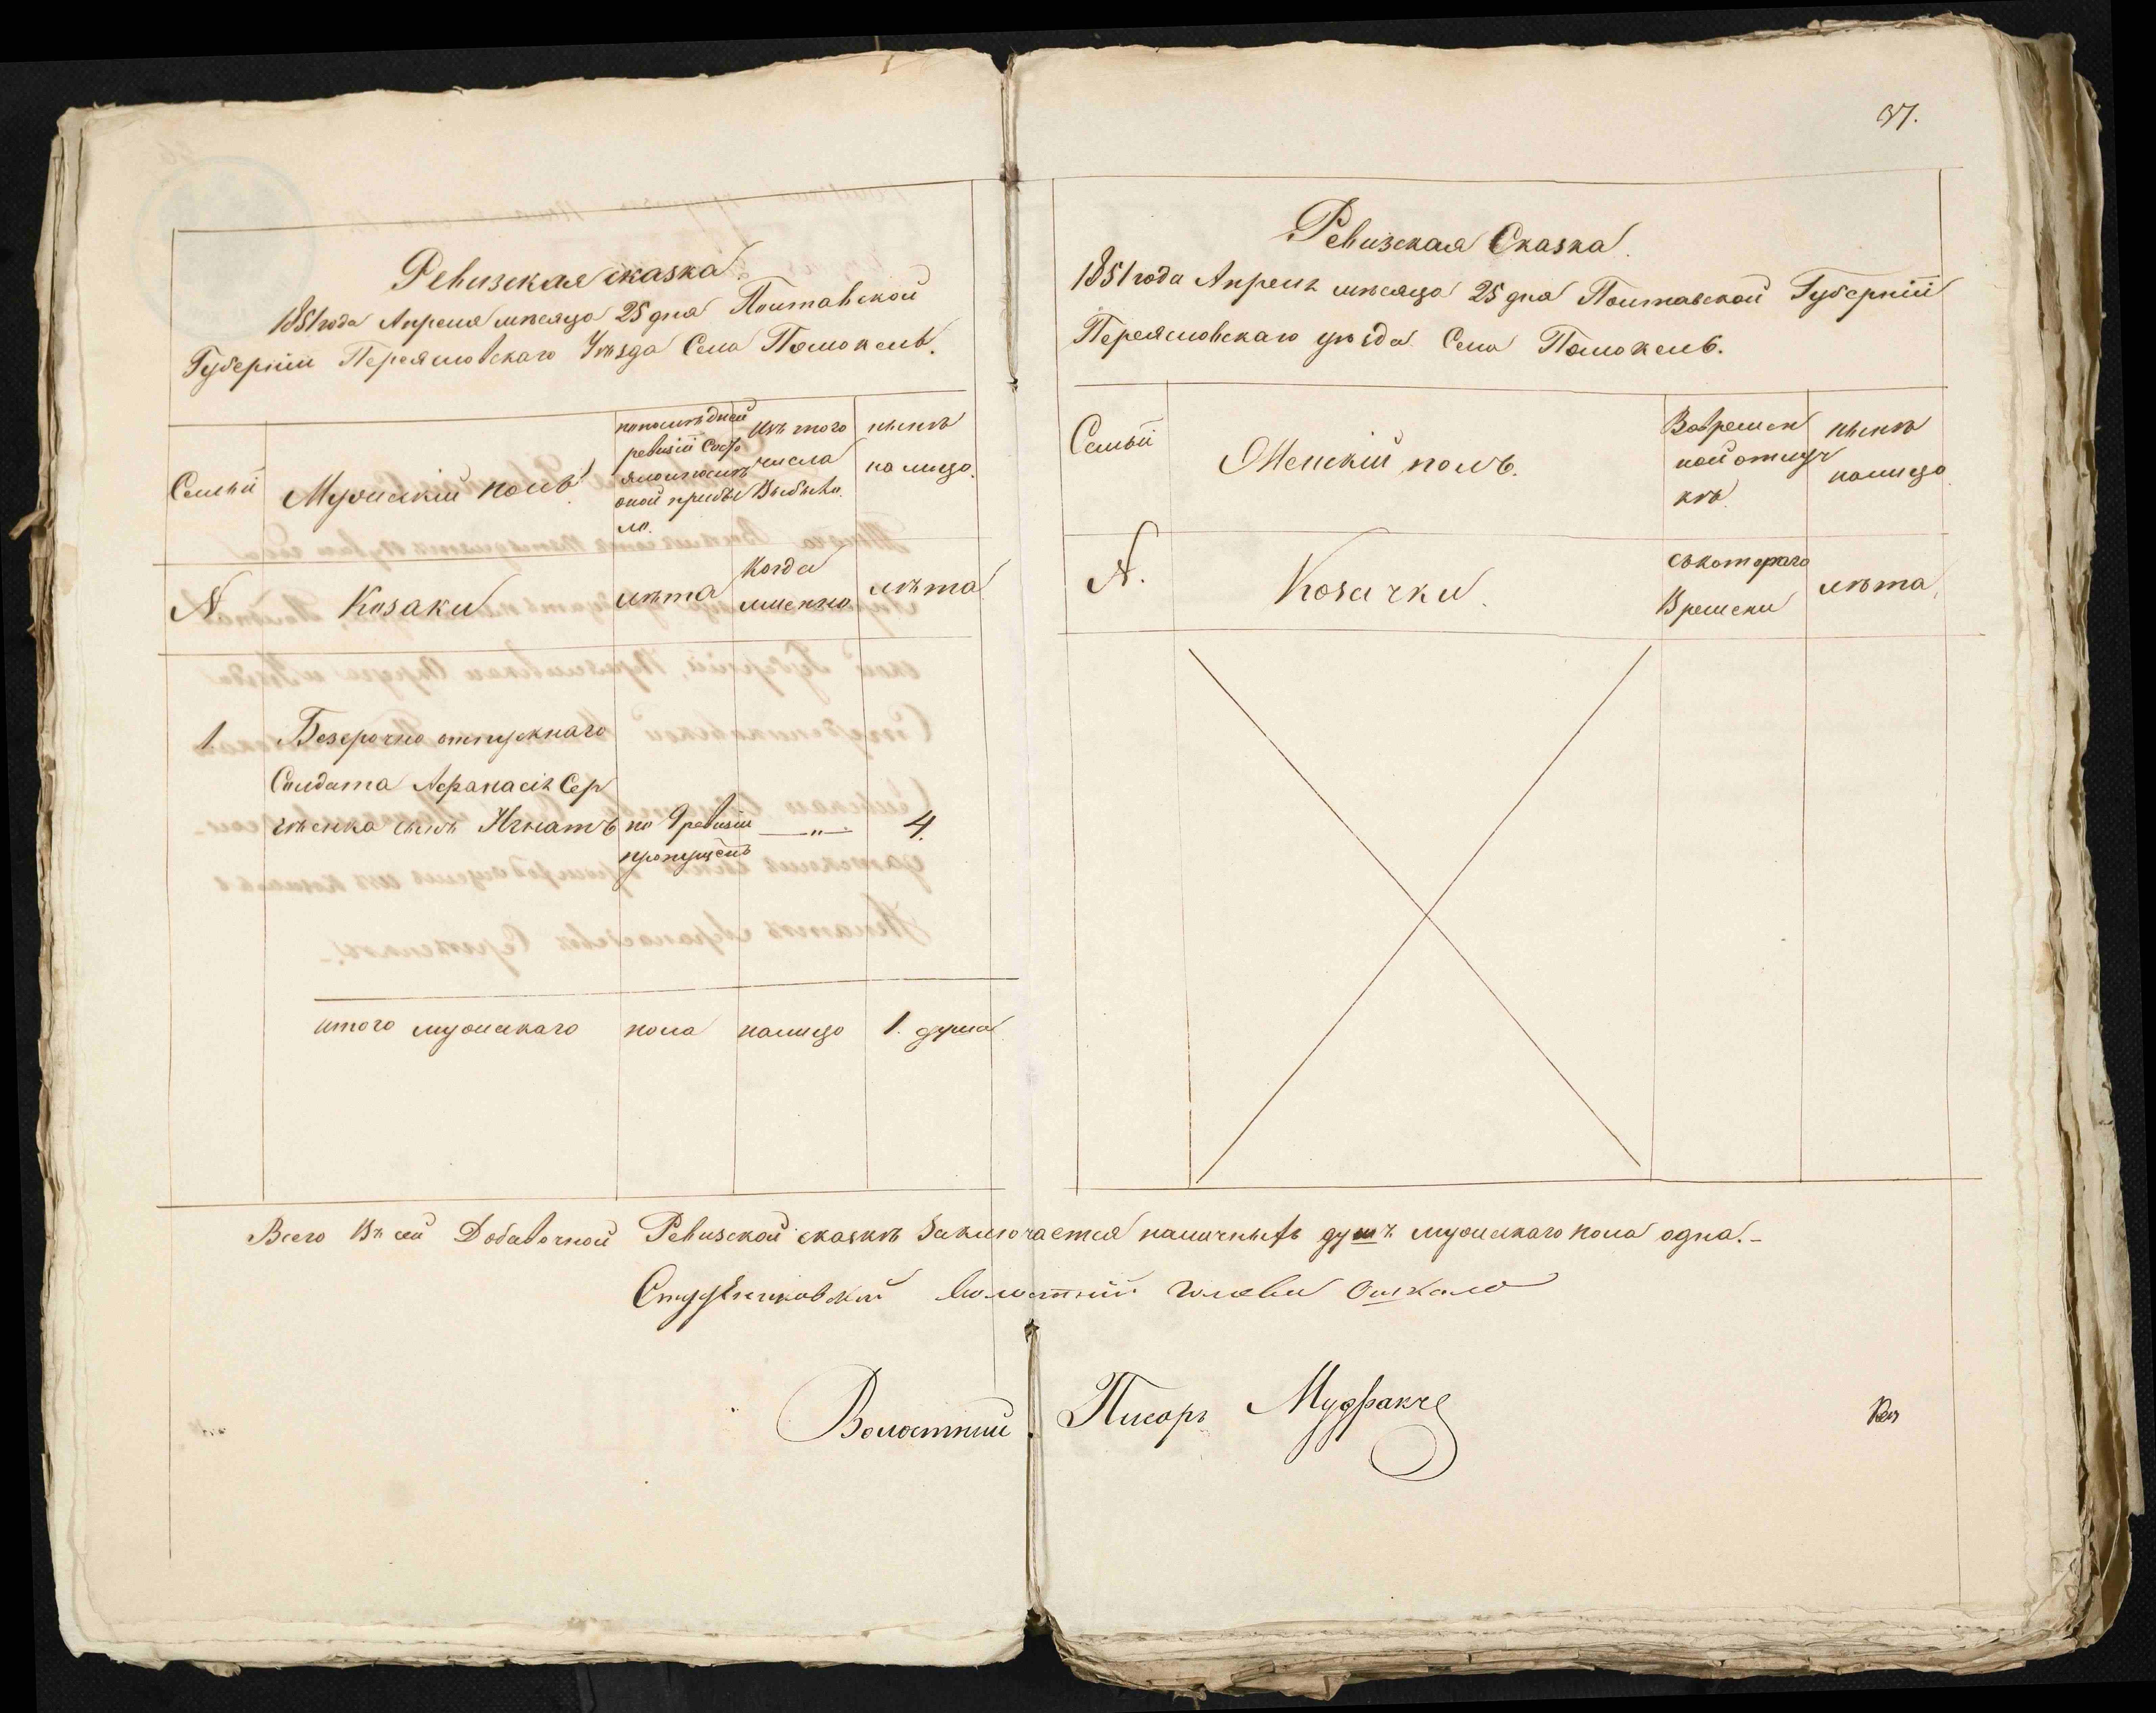 37.
Ревизская сказка.
1851 года Апреля мѣсяца 25 дня Полтавской
Губерніи Переяславскаго Уѣзда Села Помоклъ.
Семьи
Мужескій полъ
по послѣдней
ревизіи состо
яло и послѣ
оной прибы
ло.
Изъ того
числа
Выбыло.
нынѣ
на лицо.
N
Козаки
лѣта
Когда
именно
лѣта
1.
Безсрочно отпускнаго
Солдата Афанасія Сер
гѣенка сынъ Игнатъ
по 9 ревизіи
пропущенъ
— „ —
4.
итого мужескаго пола налицо 1. душа
Ревизская Сказка.
1851 года Апреля мѣсяца 25 дня Полтавской Губерніи
Переяславскаго уѣзда Села Помоклъ.
Семьи
Женскій полъ.
Во времен
ной отлуч
кѣ.
нынѣ
налицо.
N.
Козачки.
съ котораго
Времени
лѣта,
Всего Въ сей Добавочной Ревизской сказкѣ Заключается наличныхъ душъ мужескаго пола одна.-
Студениковскій волостній голова
Волостний Писарь